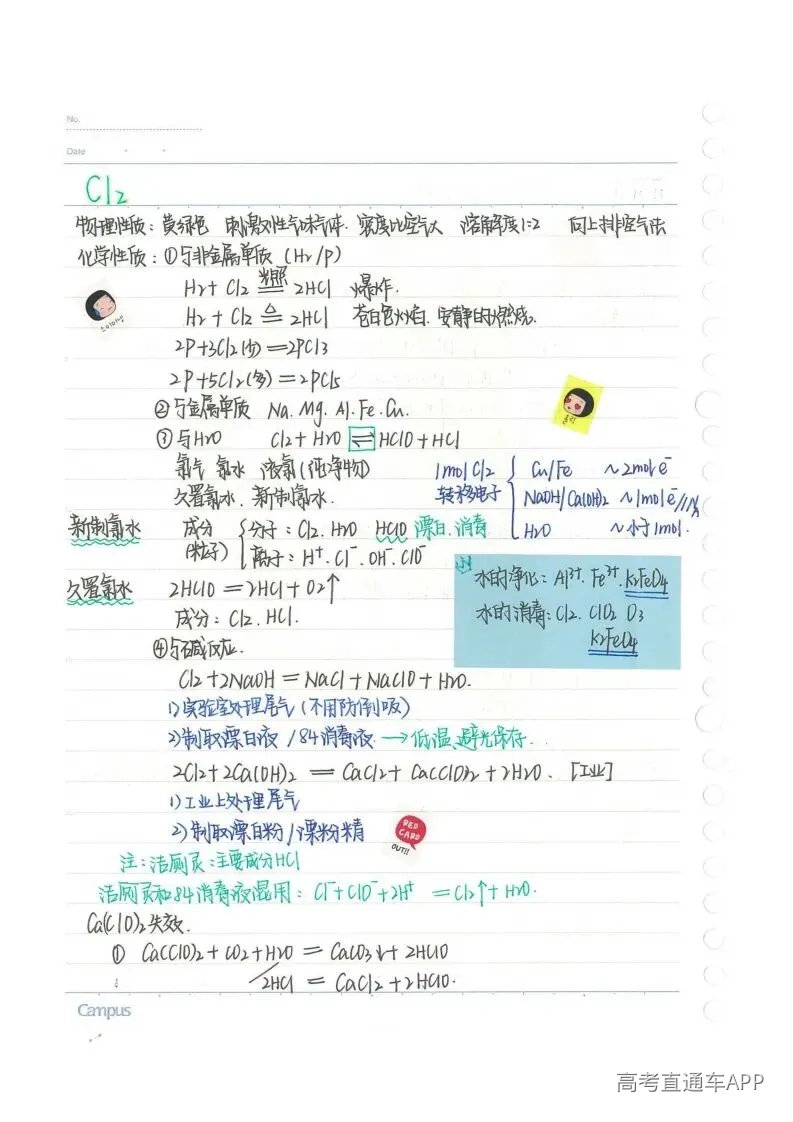 No.
Date
Cl₂
物理性质：黄绿色 刺激性气味气体. 密度比空气大 溶解度1:2 向上排空气法
化学性质：①与非金属单质 (H₂/P)
H₂ + Cl₂ 光照== 2HCl 爆炸.
H₂ + Cl₂ △== 2HCl 苍白色火焰. 安静的燃烧.
2P+3Cl₂(少)=2PCl₃
2P+5Cl₂(多)=2PCl₅
②与金属单质 Na. Mg. Al. Fe. Cu.
③与H₂O Cl₂+H₂O ⇌ HClO+HCl
氯气 氯水 液氯(纯净物)
久置氯水. 新制氯水.
1mol Cl₂ 转移电子 { Cu/Fe ~2mol e⁻
NaOH/Ca(OH)₂ ~1mol e⁻
H₂O ~小于1mol.
新制氯水 成分(粒子) { 分子：Cl₂. H₂O HClO 漂白.消毒
离子：H⁺. Cl⁻. OH⁻. ClO⁻
久置氯水 2HClO=2HCl+O₂↑
成分：Cl₂. HCl.
水的净化：Al³⁺. Fe³⁺. K₂FeO₄
水的消毒：Cl₂. ClO₂ O₃
K₂FeO₄
④与碱反应.
Cl₂+2NaOH=NaCl+NaClO+H₂O.
1)实验室处理尾气(不用防倒吸)
2)制取漂白液/84消毒液. →低温、避光保存.
2Cl₂+2Ca(OH)₂=CaCl₂+Ca(ClO)₂+2H₂O. [工业]
1)工业上处理尾气
2)制取漂白粉/漂粉精
RED CARD
OUT!!
注：洁厕灵：主要成分HCl
洁厕灵和84消毒液混用：Cl⁻+ClO⁻+2H⁺=Cl₂↑+H₂O.
Ca(ClO)₂失效.
① Ca(ClO)₂+CO₂+H₂O=CaCO₃↓+2HClO
/2HCl=CaCl₂+2HClO.
Campus
高考直通车APP